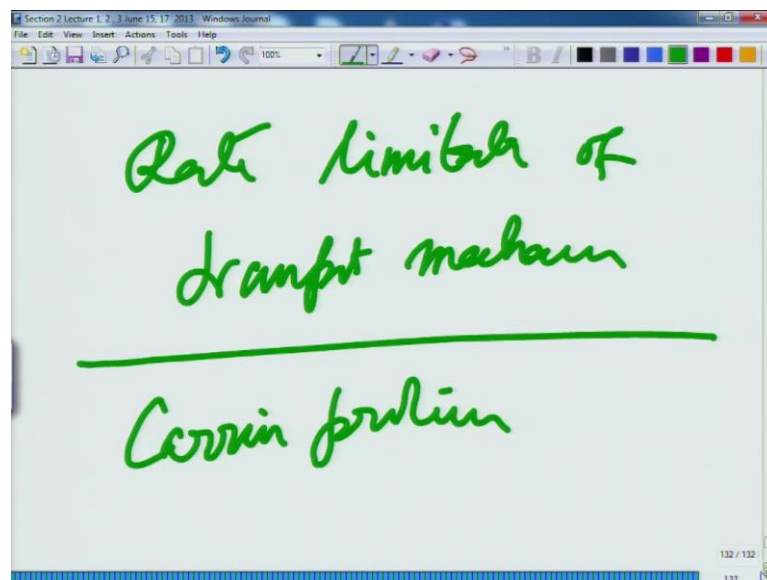 Section 2 Lecture 1, 2 , 3 June 15, 17 2013 - Windows Journal
File Edit View Insert Actions Tools Help
100%
B I
Rate limitah of
transpt mechan
Carrin
132 / 132
132